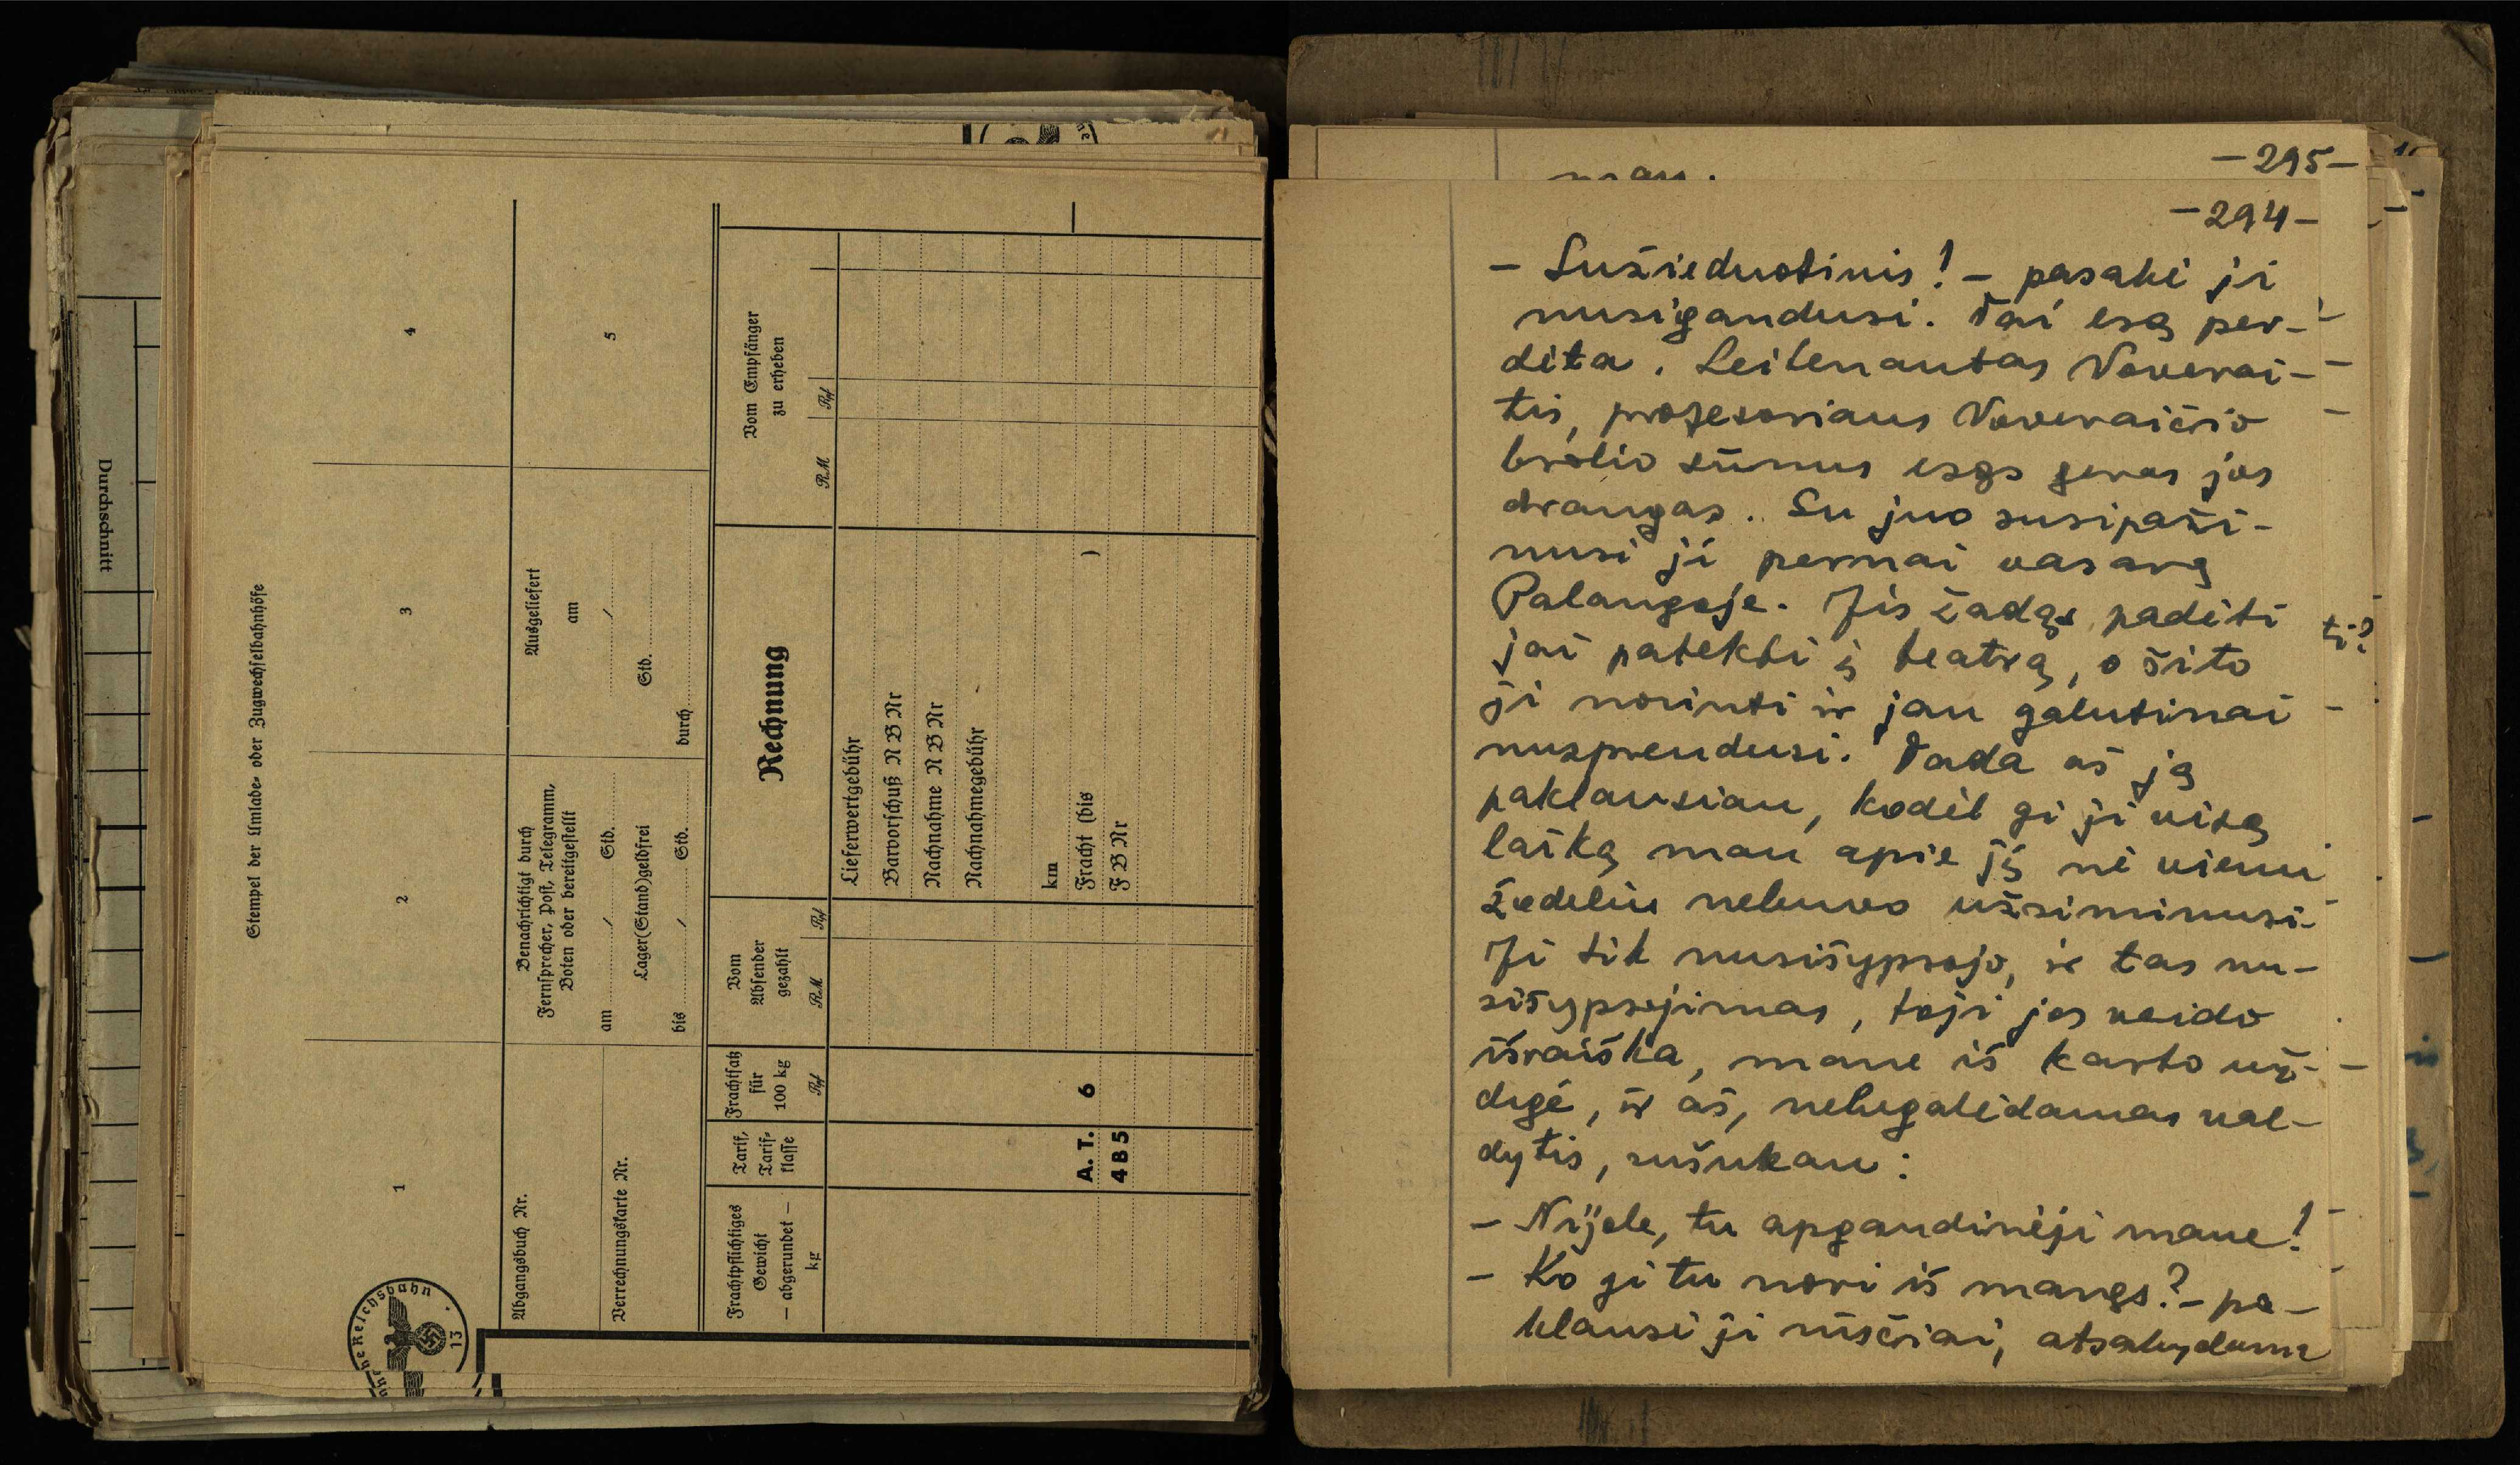 Durchschnitt
Stempel der Umlade- oder Zugwechselbahnhöfe
1
2
3
4
Abgangsbuch Nr.
Verrechnungskarte Nr.
Benachrichtigt durch
Fernsprecher, Post, Telegramm,
Boten oder bereitgestellt
am / Std.
Lager(Stand)geldfrei
bis / Std.
Ausgeliefert
am
/
Std.
durch
5
Frachtpflichtiges
Gewicht
— abgerundet —
kg
Tarif,
Tarif-
klasse
Frachtsatz
für
100 kg
Rpf
Vom
Absender
gezahlt
RM Rpf
Rechnung
Vom Empfänger
zu erheben
RM Rpf
Lieferwertgebühr
Barvorschuß N B Nr
Nachnahme N B Nr
Nachnahmegebühr
km
A. T. 6 Fracht (bis )
4 B 5 F B Nr
Reichsbahn
13
—295—
man.
—294—
— Sužieduotinis! — pasakė ji
nusigandusi. Tai esą per-
dėta. Leitenantas Voverai-
tis, profesoriaus Voveraičio
brolio sūnus esąs geras jos
draugas. Su juo susipaži-
nusi ji pernai vasarą
Palangoje. Jis žadąs padėti
jai patekti į teatrą, o šito
ji norinti ir jau galutinai
nusprendusi. Tada aš ją
paklausiau, kodėl gi ji visą
laiką man apie jį nė vienu
žodeliu nebuvo užsiminusi.
Ji tik nusišypsojo, ir tas nu-
sišypsojimas, toji jos veido
išraiška, mane iš karto už-
degė, ir aš, nebegalėdamas val-
dytis, sušukau:
— Nijole, tu apgaudinėji mane!
— Ko gi tu nori iš manęs? — pa-
klausė ji rūsčiai, atsakydama
ti?